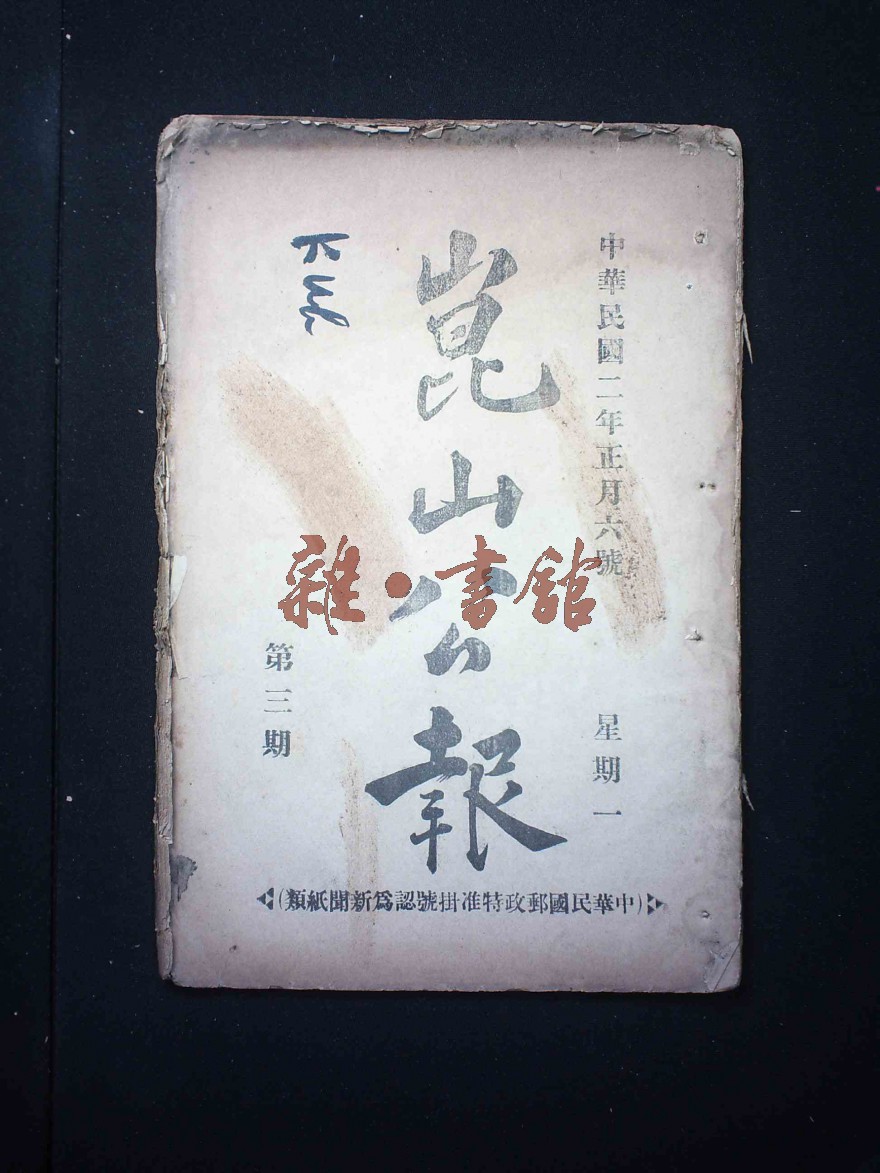 中華民國二年正月六號 星期一
崑山公報
第三期
(中華民國郵政特准掛號認爲新聞紙類)
雜·書館